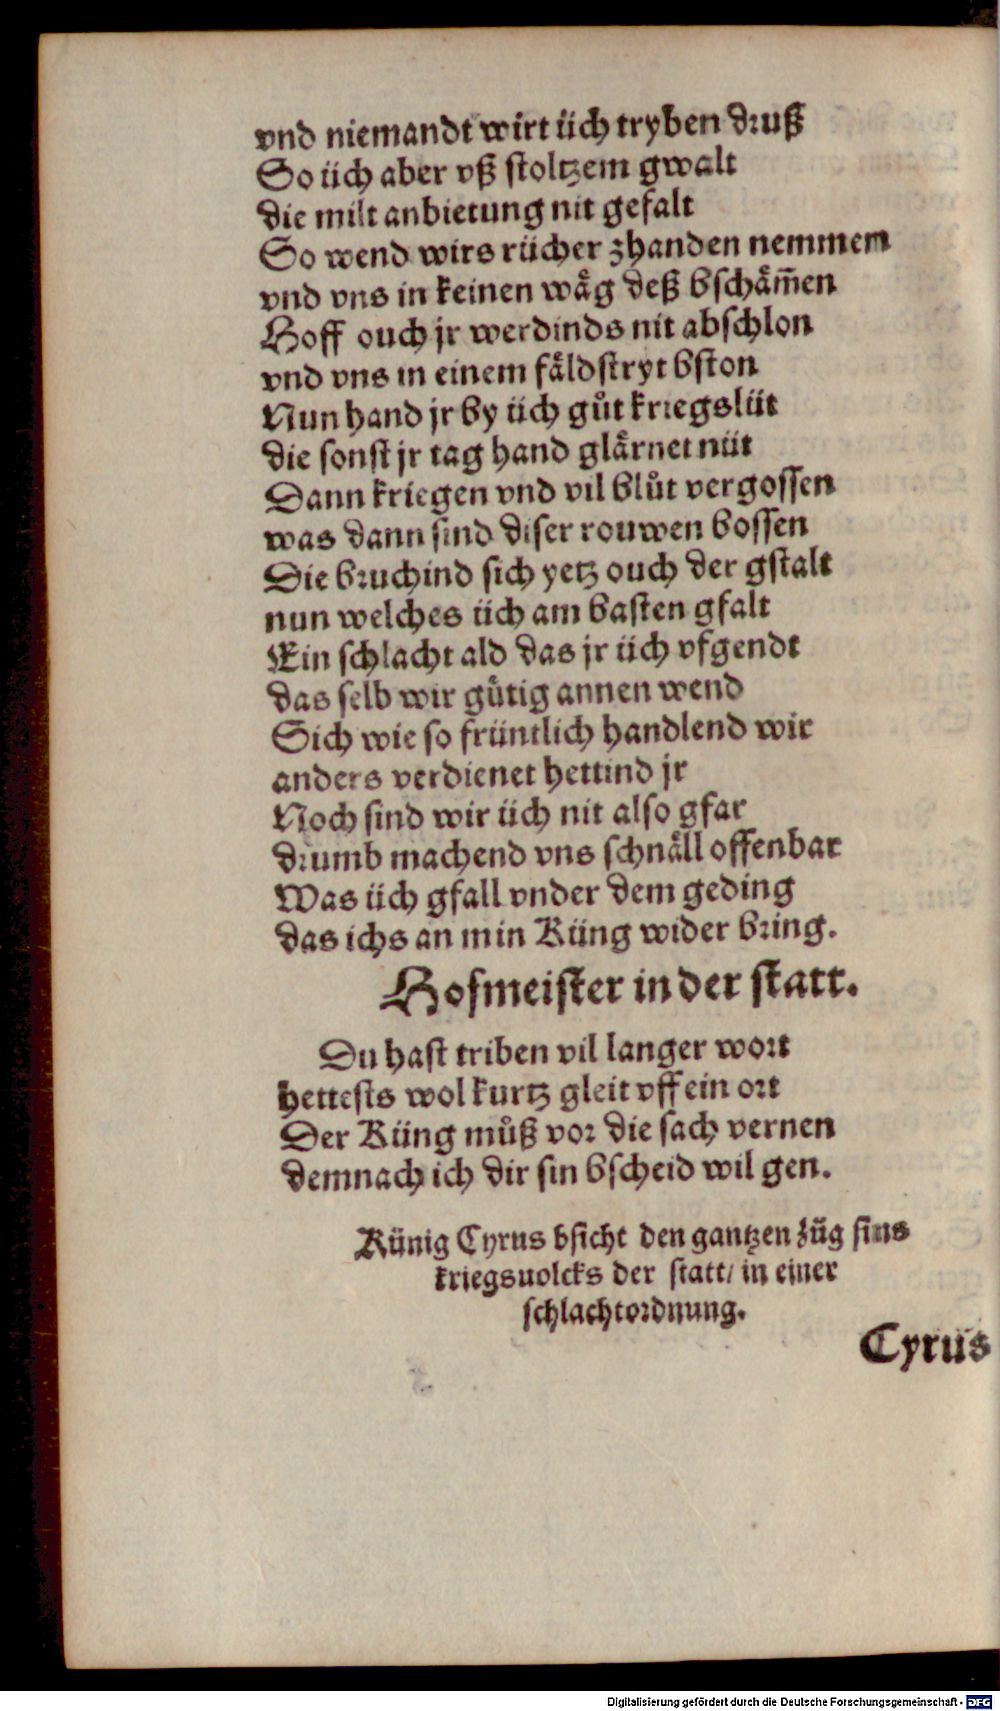 vnd niemandt wirt üch tryben druß
So üch aber vß stoltzem gwalt
die milt anbietung nit gefalt
So wend wirs rücher zhanden nemmen
vnd vns in keinen wåg deß bschåm̅en
Hoff ouch jr werdinds nit abschlon
vnd vns in einem fåldstryt bston
Nun hand jr by üch gůt kriegslüt
die sonst jr tag hand glårnet nüt
Dann kriegen vnd vil blůt vergossen
was dann sind diser rouwen bossen
Die bruchind sich yetz ouch der gstalt
nun welches üch am basten gfalt
Ein schlacht ald das jr üch vfgendt
das selb wir gůtig annen wend
Sich wie so früntlich handlend wir
anders verdienet hettind jr
Noch sind wir üch nit also gfar
drumb machend vns schnåll offenbar
Was üch gfall vnder dem geding
das ichs an min Küng wider bring.
Hofmeister in der statt.
Du hast triben vil langer wort
hettests wol kurtz gleit vff ein ort
Der Küng můß vor die sach vernen
demnach ich dir sin bscheid wil gen.
Künig Cyrus bsicht den gantzen züg sins
kriegsuolcks der statt/ in einer
schlachtordnung.
Cyrus
Digitalisierung gefördert durch die Deutsche Forschungsgemeinschaft - DFG